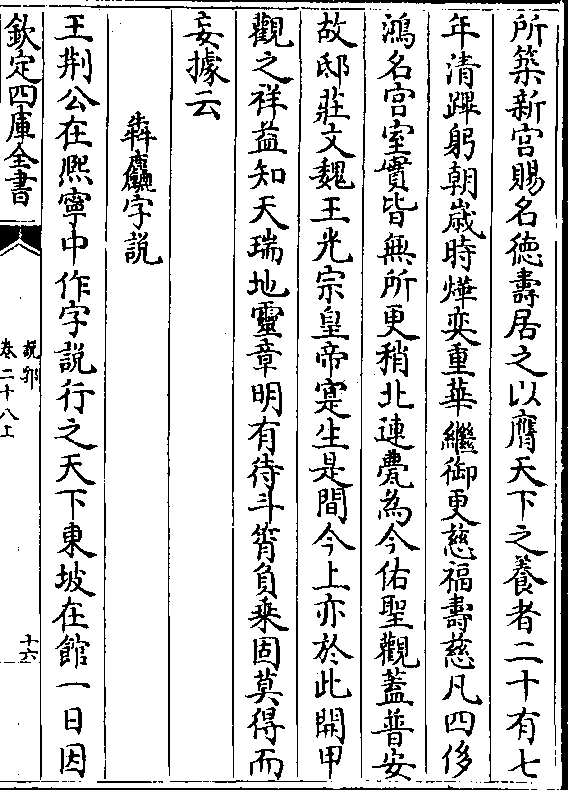 所築新宫賜名徳壽居之以膺天下之養者二十有七
年清蹕躬朝歳時燁奕重華繼御更慈福壽慈凡四侈
鴻名宫室實皆無所更稍北連甍為今佑聖觀葢普安
故邸莊文魏王光宗皇帝寔生是間今上亦於此開甲
觀之祥益知天瑞地靈章明有待斗筲負乗固莫得而
妄據云
犇麤字説
王荆公在熙寧中作字説行之天下東坡在館一日因
欽定四庫全書
説郛
卷二十八上
十六